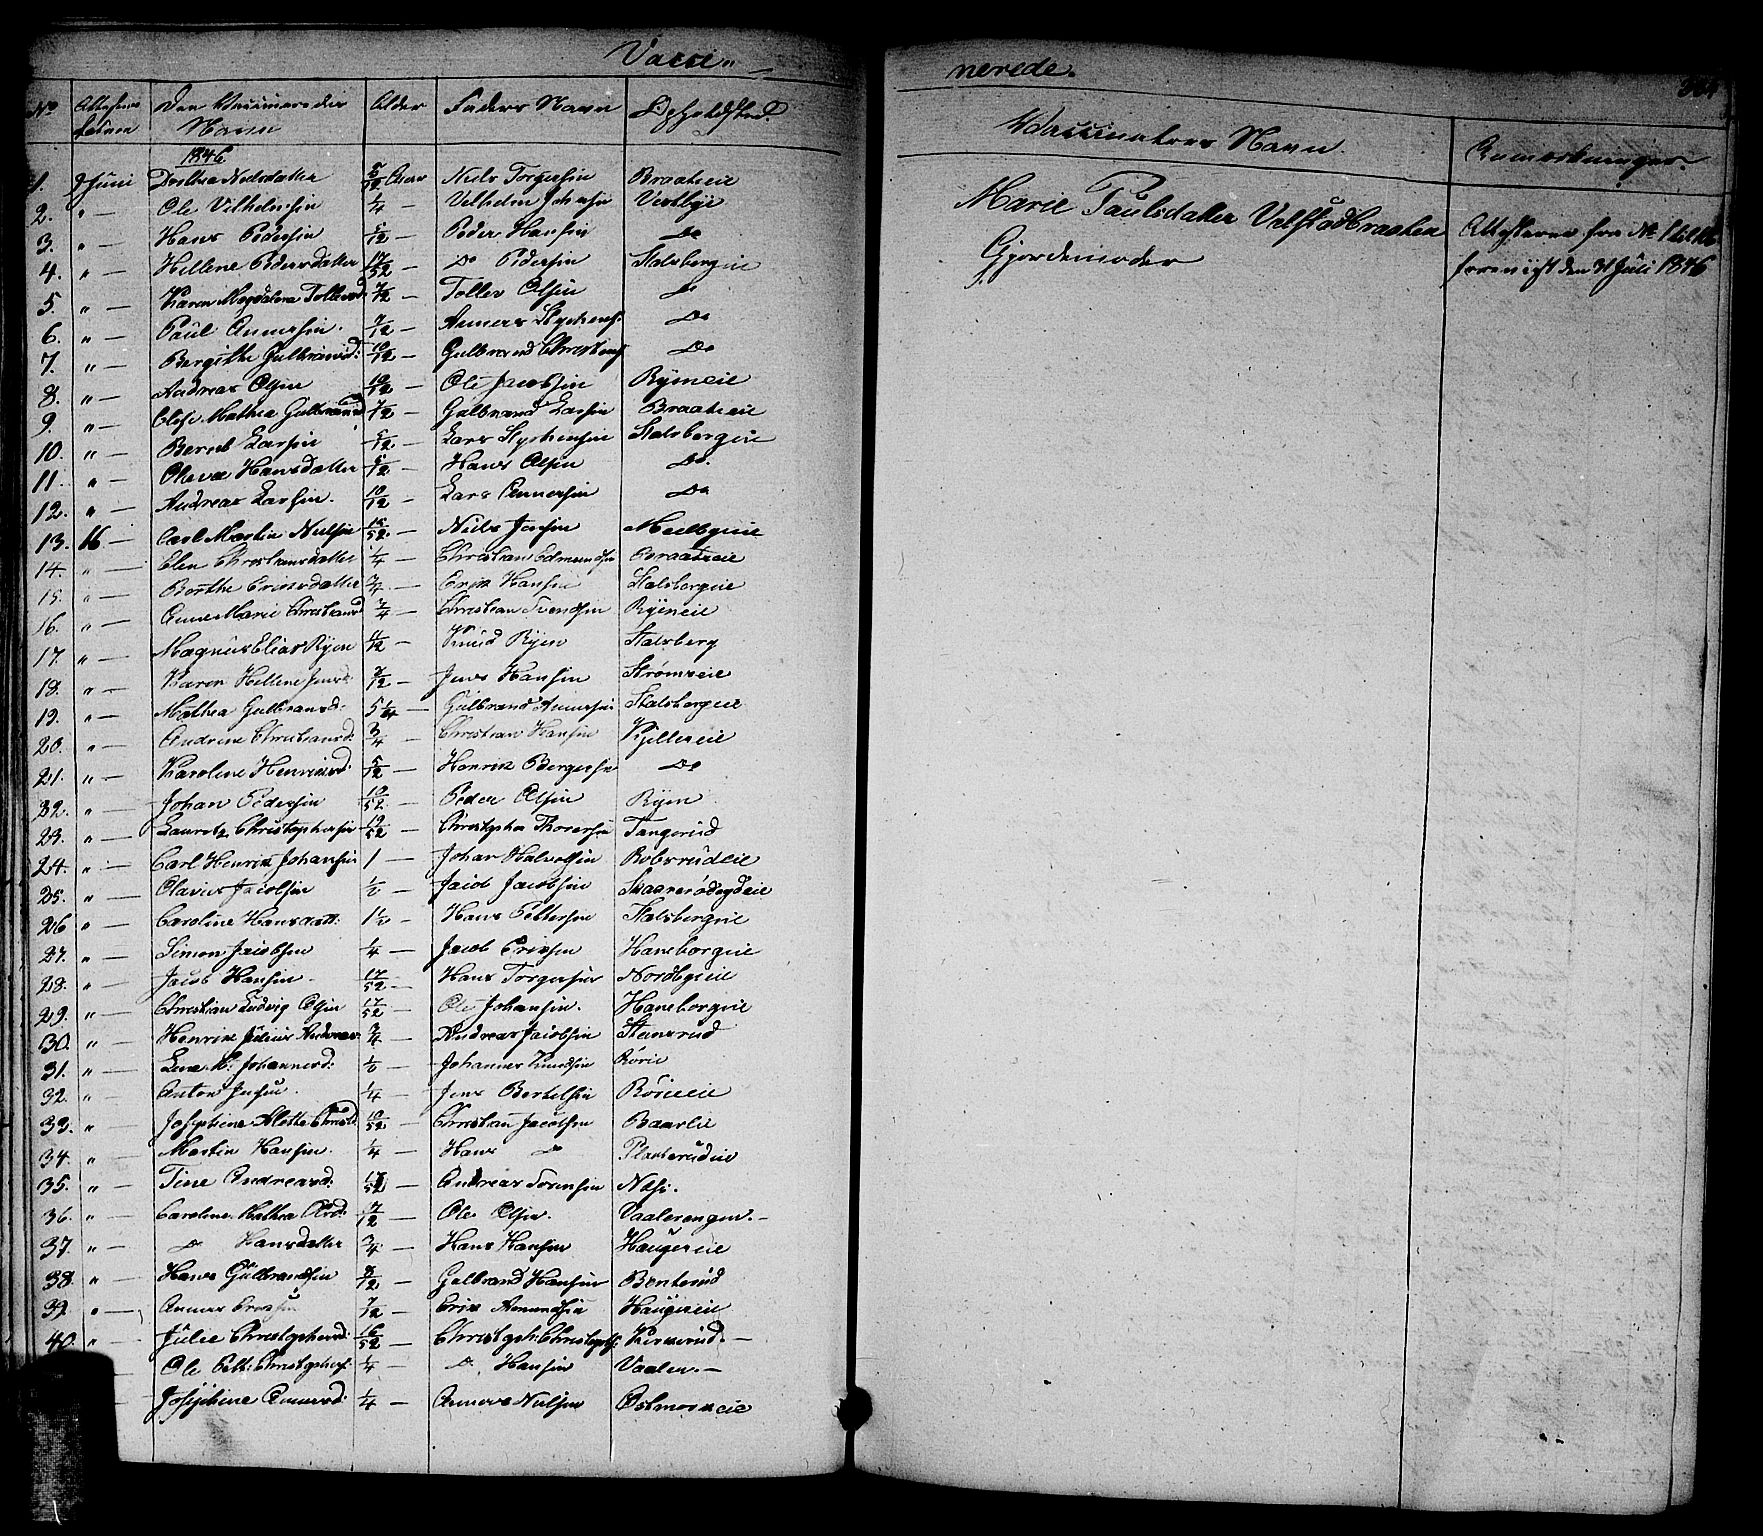 Vacci-
nerede.
No Attestens Datum Den Vaccineredes Navn Alder Faders Navn Opholdsted. Vaccinateurs Navn. Anmærkninger.
1846
1. 9 Juni Dorthea Nielsdatter 5/12 Aar Niels Torgersen Braateeie Marie Paulsdatter Braathen
2. " — Ole Vilhelmsen 1/4 — Vilhelm Johnsen Vestbye Gjordemoder
3. " — Hans Pedersen 5/12 — Peder Hansen Do
4. " — Hellene Pedersdatter 17/52 — Do Pedersen Stalsbergeie
5. " — Karen Magdalena Tollersd: 7/12 — Toller Olsen Do
6. " — Paul Annersen. 7/12 — Anners Stephens. Do
7. " — Bergithe Gulbransd: 10/12 — Gulbrand Christens. Do
8. " — Andreas Olsen 10/12 — Ole Jacobsen Ryeneie
9. " — Mathea Gulbransd 7/12 — Gulbrand Larsen Braateeie
10. " — Bernt Larsen 5/12 — Lars Stephensen Stalsbergeie
11. " — Olava Hansdatter 5/12 — Hans Olsen Do.
12. " — Andreas Larsen. 10/12 — Lars Annersen Do
13. 16. — Carl Martin Nielsen 15/52. — Niels Jensen
14. " — Elen Christiansdatter 1/4 — Christian Edmundsen Braateeie
15. " — Berthe Ericsdatter 3/4 — Erik Hansen Stalsbergeie
16. " — Anne Marie Christiansd 3/4 — Christian Svendsen Ryeneie
17. " — Magnus Elias Ryen — Knud Ryen Stalsberg
18. " — Karen Hellene Jensd: 7/12 — Jens Hansen Strømseie
19. " — Mathea Gulbransd: — Gulbrand Annersen Stalsbergeie
20. " — Andrine Christiansd: 3/4 — Christian Hansen Kjellereie
21. " — Karoline Henriksd: 5/12 — Henrik Bergersen Do
22. " — Johan Pedersen 10/52 — Peder Olsen Ryen
23. " — Lauritz Christophersen 19/52 — Christopher Thoresen Tangerud
24. " — Carl Henrik Johansen 1 — Johan Halvorsen Robsrudeie
25. " — Olavus Jacobsen 1/2 — Jacob Jacobsen
26 " — Caroline Hansdatt: 1 1/2 — Hans Pettersen Stalsbergeie
27. " — Simen Jacobsen 1/4 — Jacob Ericsen Haneborgeie
28. " — Jacob Hansen. 17/52 — Hans Torgersen Nordbyeie
29. " — Christian Ludvig Olsen 17/52 — Ole Johansen. Haneborgeie
30. " — Henrik Julius Andreas. 3/4 — Andreas Jacobsen Stensrud
31. " — Lene M: Johannesd: 1/2 — Johannes Knudsen
32. " — Anton Jensen. 1/4 — Jens Bertelsen
33. " — Josephine Alette Christd 10/52 — Christian Jacobsen
34. " — Martin Hansen. 1/4 — Hans Do
35. " — Tine Andreasd: 17/52 — Andreas Sørensen
36. " — Caroline Mathea Olsd: 7/12 — Ole Olsen. Vaalerengen. —
37. " — Do Hansdatter 3/4 — Hans Hansen Haugeseie
38. " — Hans Gulbrandsen 8/12 — Gulbrand Hansen Benterud
39. " — Anners Ericsen 7/12 — Erik Amundsen Haugeseie
40. " Julie Christophersd: 16/52 — Christoph: Christophs. Kirkerud. —
Ole Pett: Christophers. 1/4 — Do. Hansen Vaaler. —
— Josephine Annersd: 1/4 — Anners Nielsen Østmorkeie
Attesterne fra No 1
den 31 Juli 1846